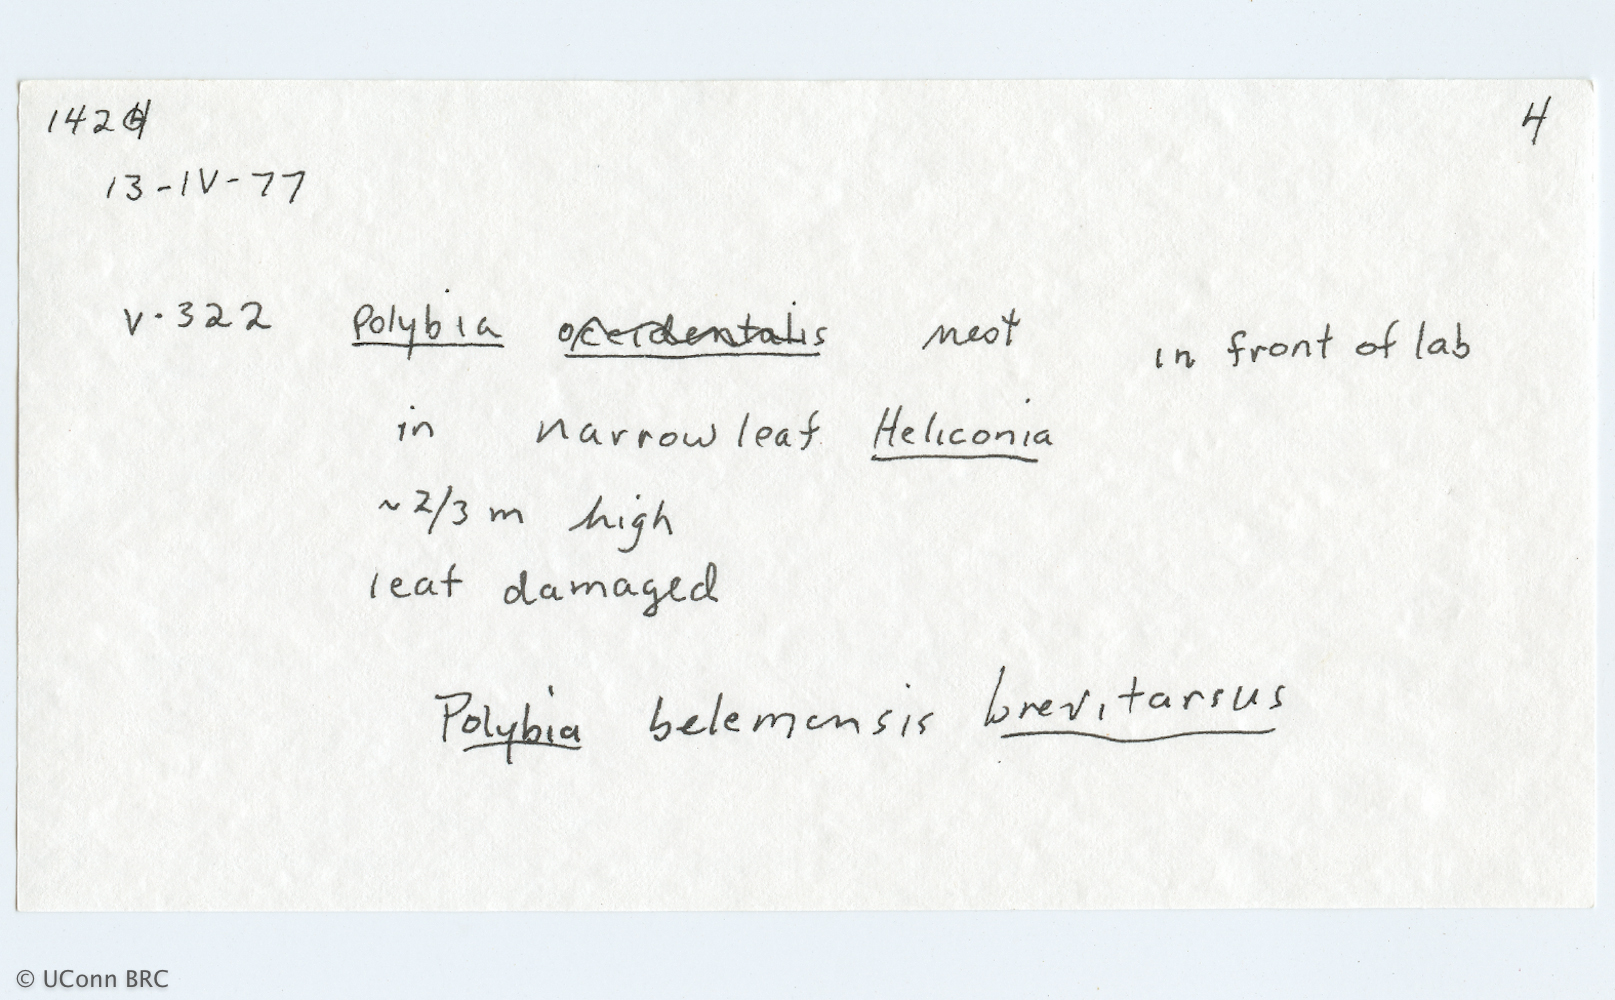 1424 4
13-IV-77
V-322 Polybia occidentalis nest in front of lab
in narrow leaf Heliconia
~2/3 m high
leaf damaged
Polybia belemensis brevitarsus
© UConn BRC